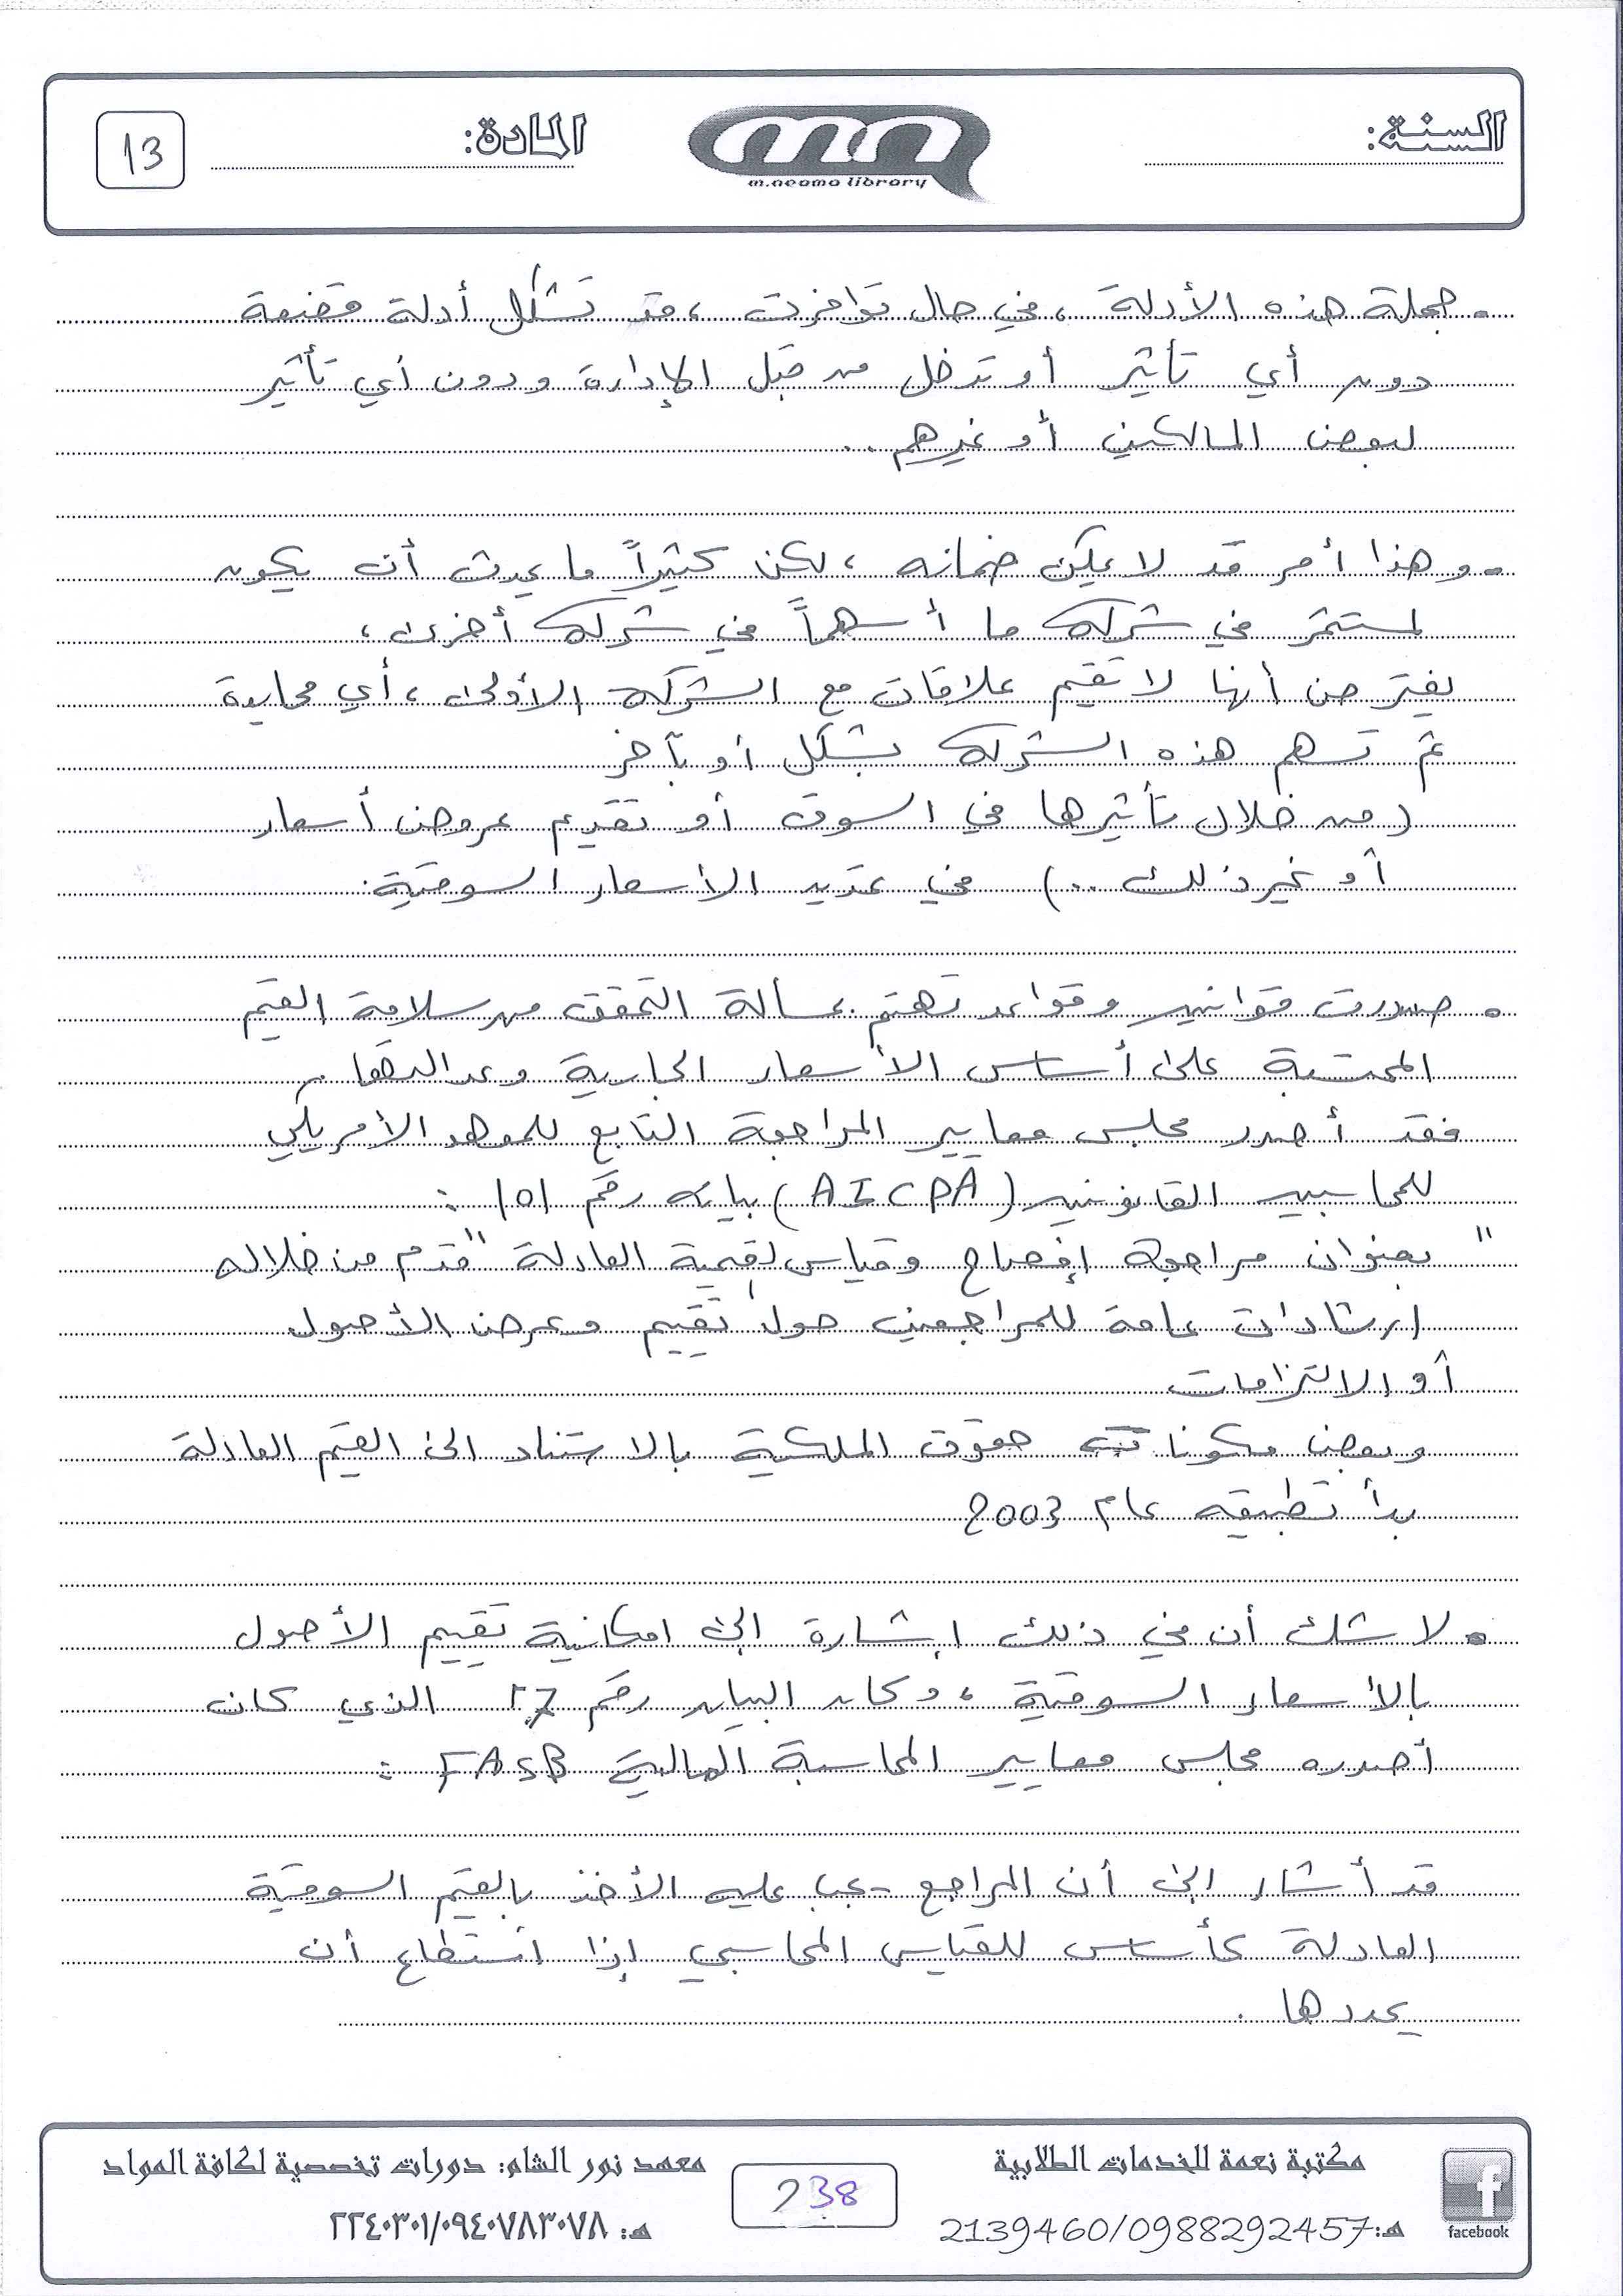 السنة:
m.neama library
المادة:
13
• جملة هذه الأدلة ، في حال توافرت ، قد تشكل أدلة مقنعة
دون أي تأثير أو تدخل من قبل الإدارة ودون أي تأثير
لبعض المالكين أو غيرهم ..
• وهذا أمر قد لا يمكن ضمانه ، لكن كثيراً ما يحدث أن يكون
لمستثمر في شركة ما أسهماً في شركة أخرى ،
يفترض أنها لا تقيم علاقات مع الشركة الأولى ، أي محايدة
ثم تسهم هذه الشركة بشكل أو بآخر
( من خلال تأثيرها في السوق أو تقديم عروض أسعار
أو غير ذلك .. ) في تحديد الأسعار السوقية .
• صدرت قوانين وقواعد تهتم بمسألة التحقق من سلامة القيم
المحتسبة على أساس الأسعار الجارية وعدالتها .
فقد أصدر مجلس معايير المراجعة التابع للمعهد الأمريكي
للمحاسبين القانونين ( AICPA ) بيانه رقم ١٥١ :
" بعنوان مراجعة إفصاح وقياس لقيمة العادلة " قدم من خلاله
إرشادات عامة للمراجعين حول تقييم وعرض الأصول
أو الالتزامات
وبعض مكونات حقوق الملكية بالاستناد الى القيم العادلة
بدأ تطبيقه عام 2003
• لا شك أن في ذلك إشارة الى امكانية تقييم الأصول
بالأسعار السوقية ، وكان البيان رقم الذي كان
أصدره مجلس معايير المحاسبة المالية FASB :
قد أشار الى أن المراجع يجب عليه الأخذ بالقيم السوقية
العادلة كأساس للقياس المحاسبي إذا استطاع أن
يحددها .
facebook
مكتبة نعمة للخدمات الطلابية
هـ: 2139460/0988292457
238
معهد نور الشام: دورات تخصصية لكافة المواد
هـ: ٢٢٤٠٣٠١/٠٩٤٠٧٨٣٠٧٨